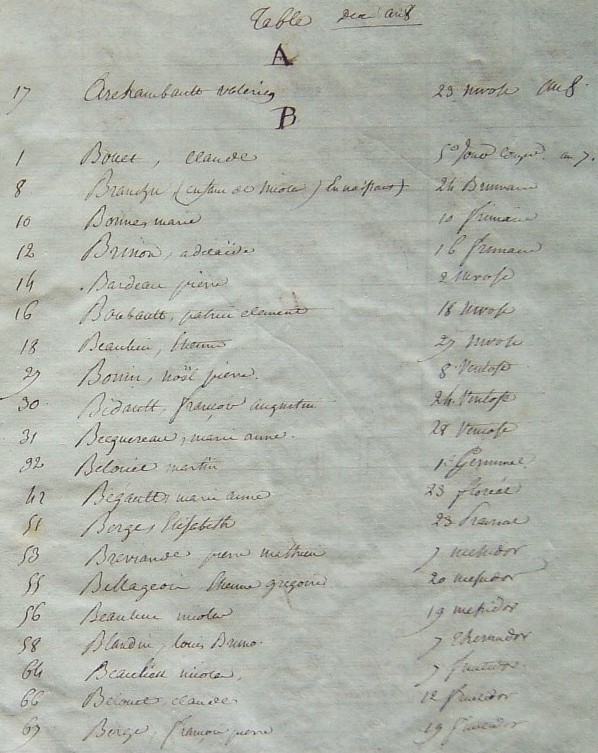 Table des an 8
A
17 Archambault valerie 23 nivose an 8.
B
1 Bouet, claude 5e Jour an 7.
8 Brandin (de nicolas) 24 Brumaire
10 Bonnet marie 10 frimaire
12 Brinon, adelaïde 16 frimaire
14 Bardeau pierre 2 nivose
16 Boubault, patrice clement 18 nivose
18 Beaulieu, Etienne 27 nivose
27 Bonin, noël pierre. 8 Ventose
30 Bidault, françois augustin 24 Ventose
31 Becquereau, marie anne. 28 Ventose
32 Belouet martin 1er Germinal
42 Begault, marie anne 23 floréal
51 Berge, Elisabeth 23 Prairial
53 Breviande pierre mathieu 7 messidor
55 Bellageoin Etienne gregoire 20 messidor
56 Beaulieu nicolas 19 messidor
58 Blandin, louis Bruno. 7 thermidor
64 Beaulieu nicolas, 7 fructidor
66 Belouet, claude 12 fructidor
67 Berge, françois pierre 19 fructidor